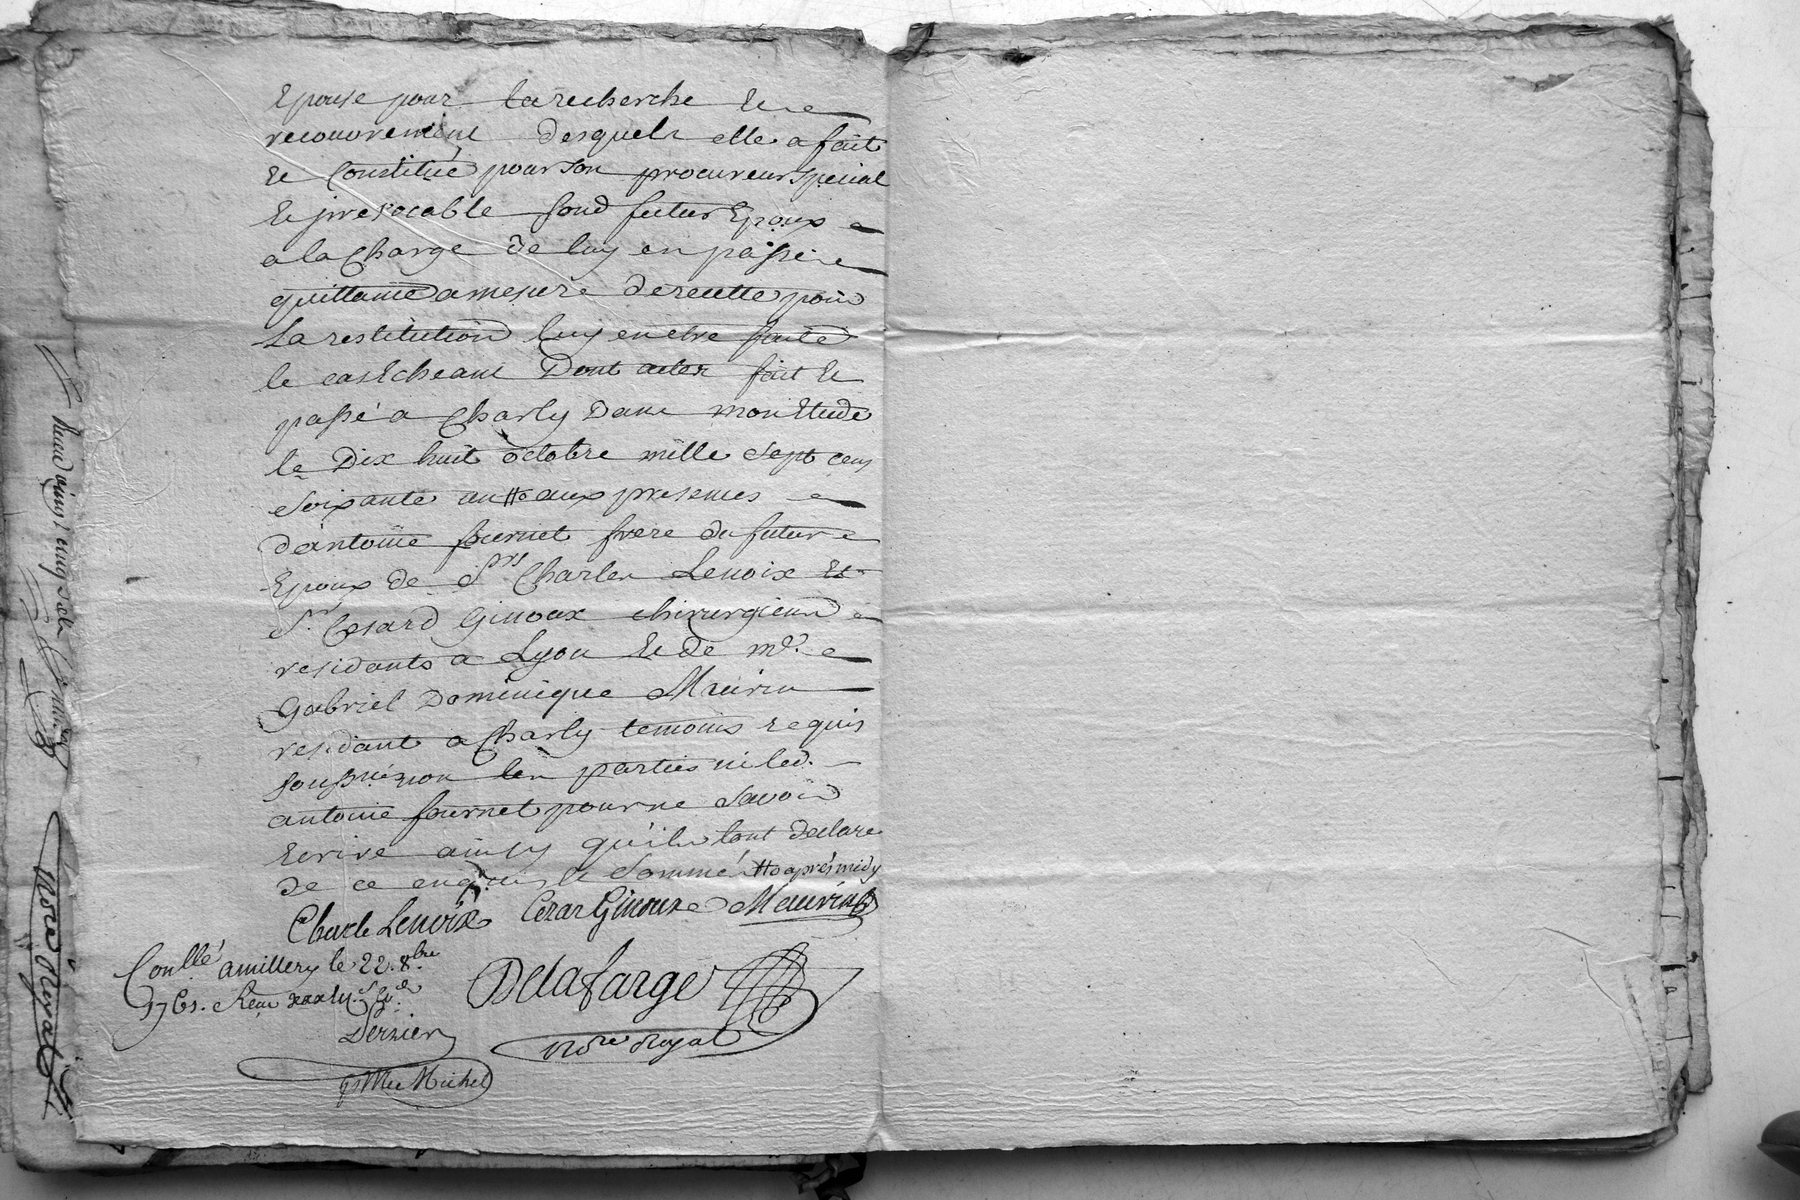 Epouse pour la recherche Et
recouvrement desquels elle a fait
Et Constitué pour son procureur special
Et jrrevocable sond futur Epoux
a la Charge de luy en passer
quittance a mesure de recette pour
La restitution luy en etre faite
le cas Echeant Dont acte fait Et
passé a Charly Dans mon Etude
le Dix huit octobre mille sept cens
soixante un # aux presences
d'antoine fournet frere du futur
Epoux de Srs Charles Lenoix Et
Sr Cesard Ginoux chirurgiens
residants a Lyon Et de me
Gabriel Dominique Mauvin
residant a Charly temoins requis
soussnés non les parties ni led.
antoine fournet pour ne savoir
Ecrire ainsy qu'ils l'ont declare
de ce enquis Et Sommé # apres midy
Charle Lenoix Cezar Ginoux Mauvin
Conllé a millery le 22. 8bre
1761. Reçu
Dernier
Delafarge
nore Royal
Michel
nore Royal